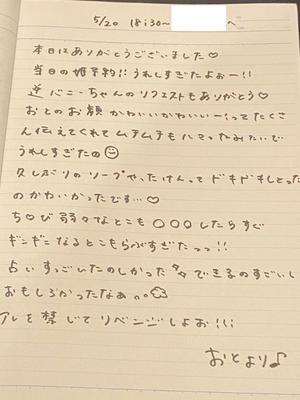 5/20 18:30〜 へ
本日はありがとうございました♡
当日の姫予約!!うれしすぎたよぉー!!
逆バニーちゃんのリクエストもありがとう♡
おとのお顔かわいいかわいいーってたくさ
ん伝えてくれてムチムチもハマったみたいで
うれしすぎたの☺
久しぶりのソープやったけんってドキドキしとった
のかわいかったです…♡
ち♡び弱々なとこも○○○したらすぐ
ギンギンなるとこもらぶすぎたっっ!!
占いすっごいたのしかった できるのすごいし
おもしろかったなぁ。。
アレを禁じてリベンジしよお!!!
おとより♪